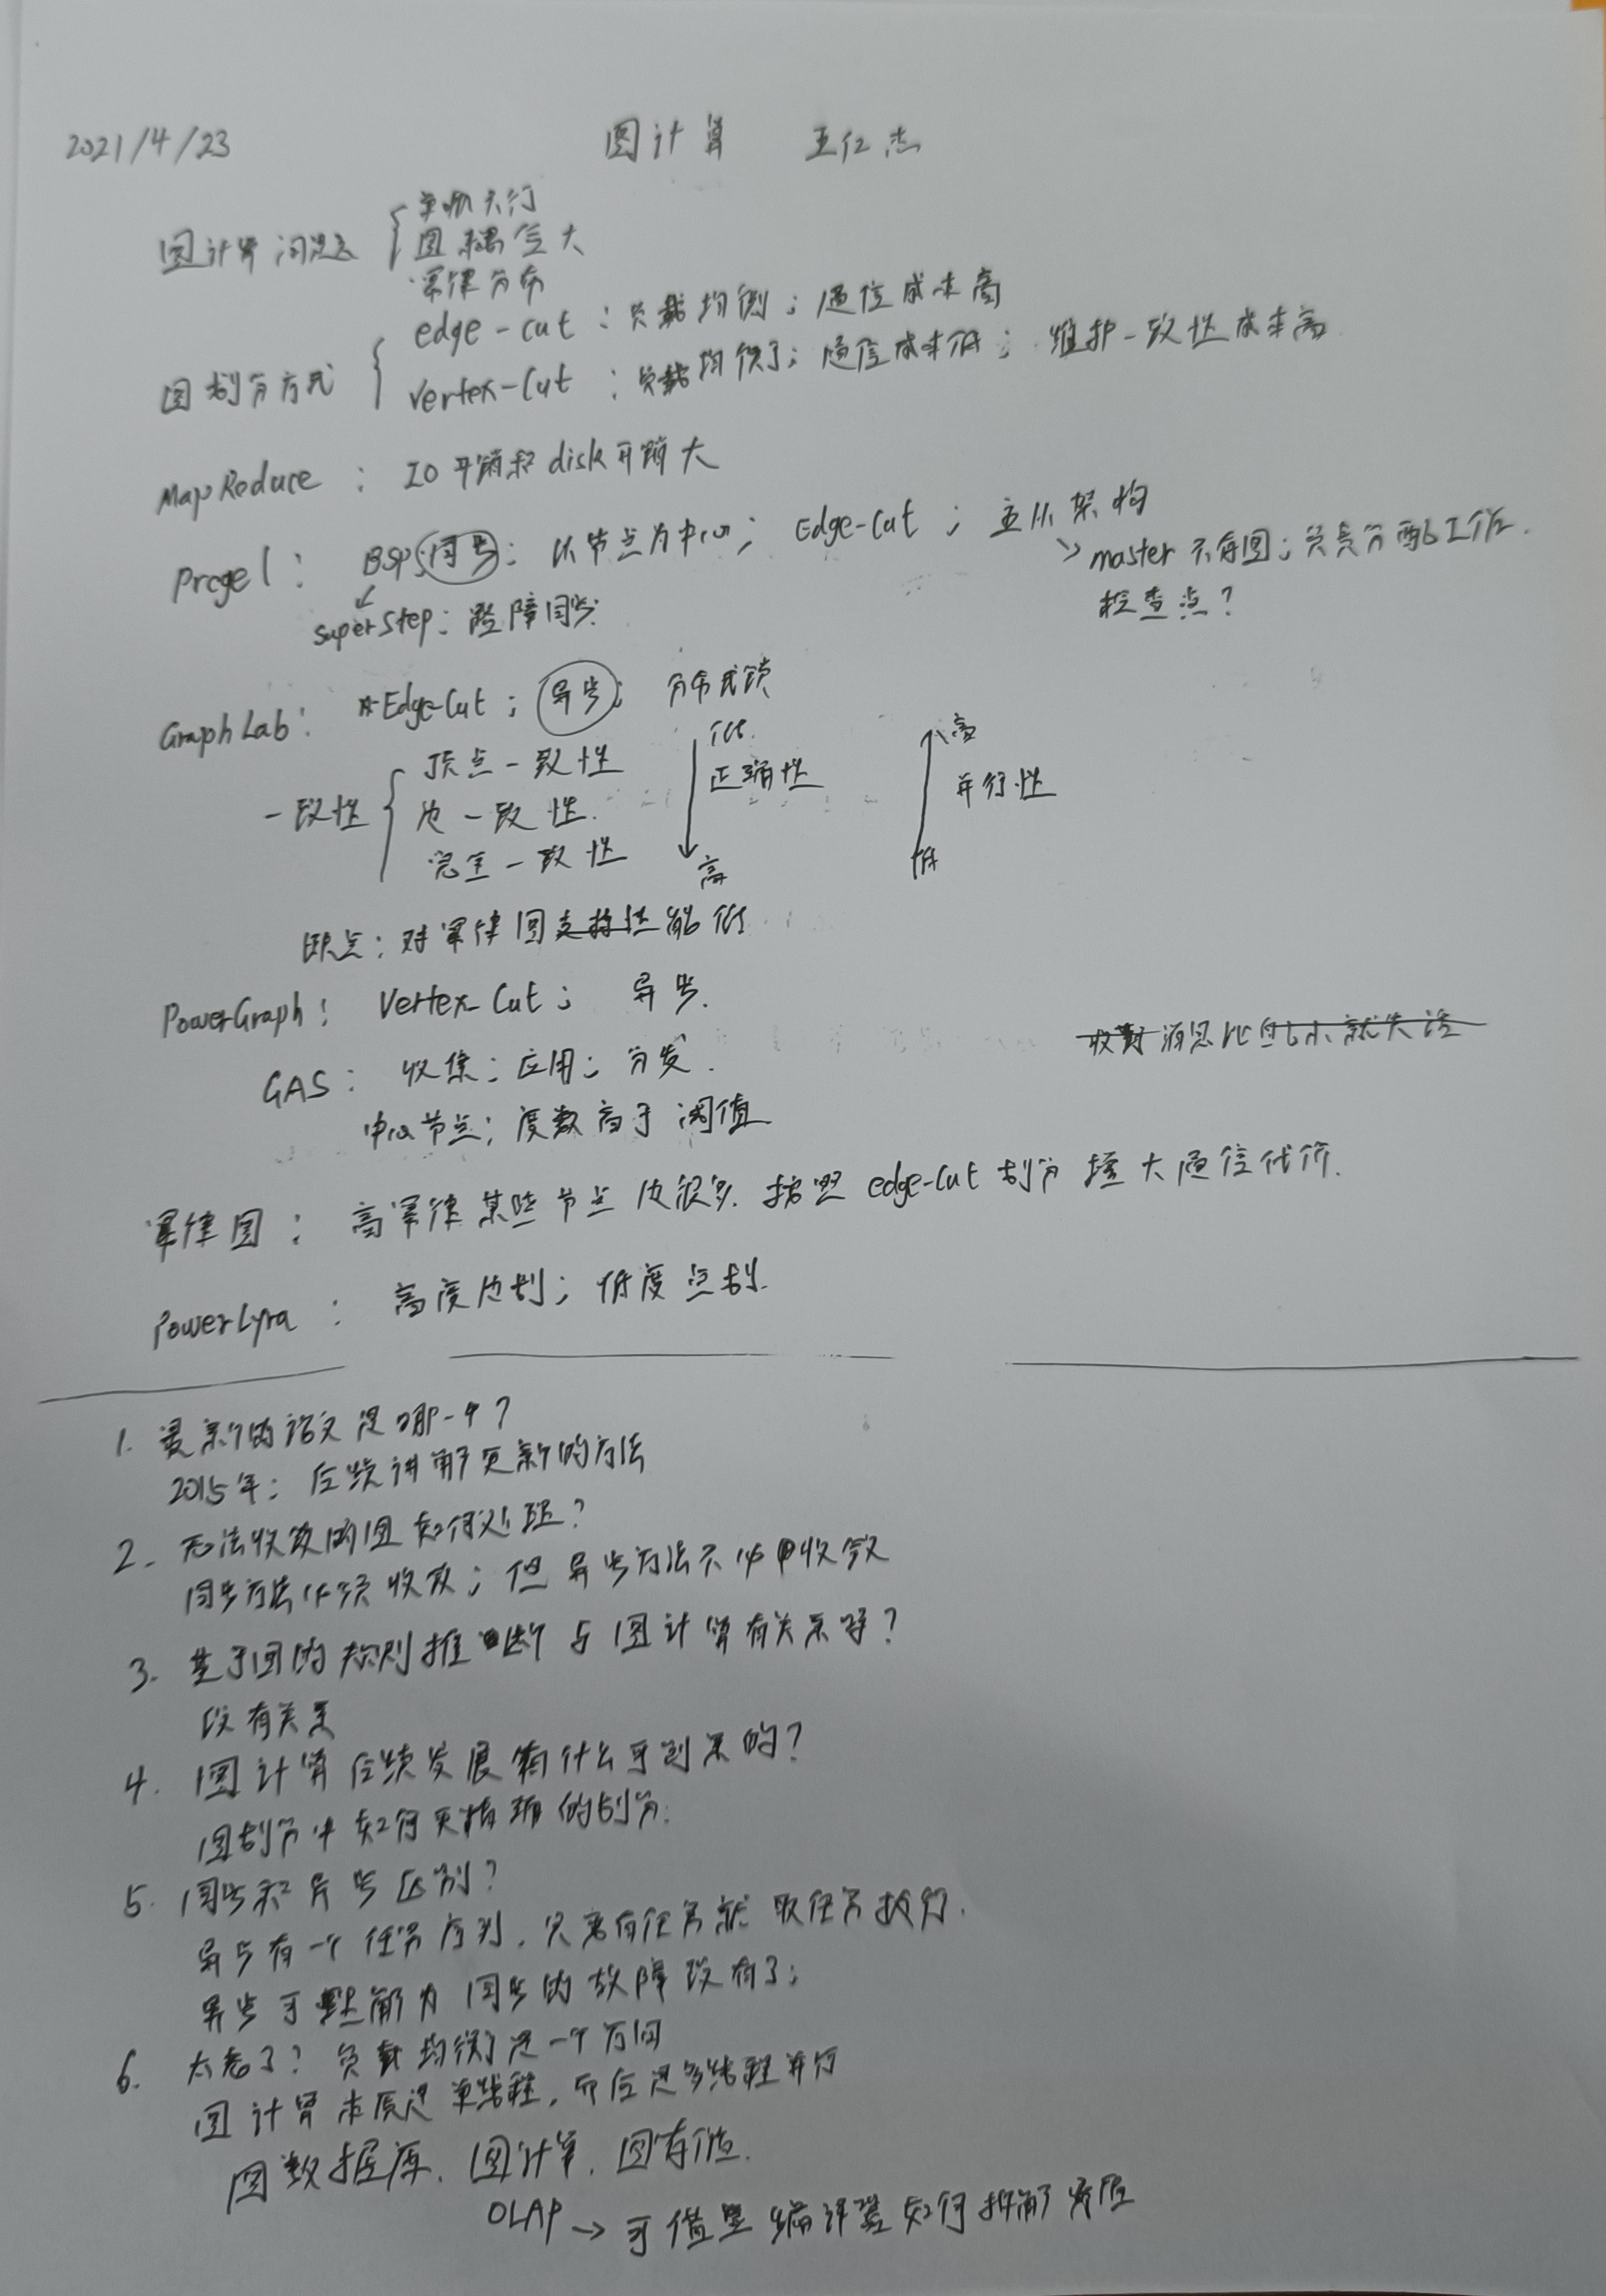 2021/4/23 图计算 王仁杰
图计算问题
单机不行
图耦合大
幂律分布
图划分方式
edge-cut：负载均衡；通信成本高
vertex-cut：负载均衡；通信成本低；维护一致性成本高
MapReduce：IO开销和disk开销大
Pregel：BSP；同步；以节点为中心；Edge-Cut；主从架构
master不存图；负责分配工作.
检查点？
superstep：路障同步
GraphLab：Edge-Cut；异步；分布式锁
一致性
顶点一致性
边一致性
完全一致性
低 正确性 高
高 并行性 低
缺点：对幂律图支持性能低
PowerGraph：Vertex-Cut；异步.
收到消息比自己小就失活
GAS：收集；应用；分发.
中心节点；度数高于阈值
幂律图：高幂律某些节点边很多.按照edge-cut划分 擡大通信代价.
PowerLyra：高度边割；低度点割.
1. 最新的论文是哪一个？
2015年；后续讲解更新的方法
2. 无法收敛的图如何处理？
同步方法必须收敛；但异步方法不必收敛
3. 基于图的规则推断与图计算有关系吗？
没有关系
4. 图计算后续发展有什么可创新的？
图划分中如何更精确的划分.
5. 同步和异步区别？
异步有一个任务序列，只要有任务就取任务执行.
异步可理解为同步的故障没有了；
6. 太老了？负载均衡是一个方向
图计算本质是单线程，而后是多线程并行
图数据库.图计算.图存储.
OLAP→可借鉴编译器如何拆解